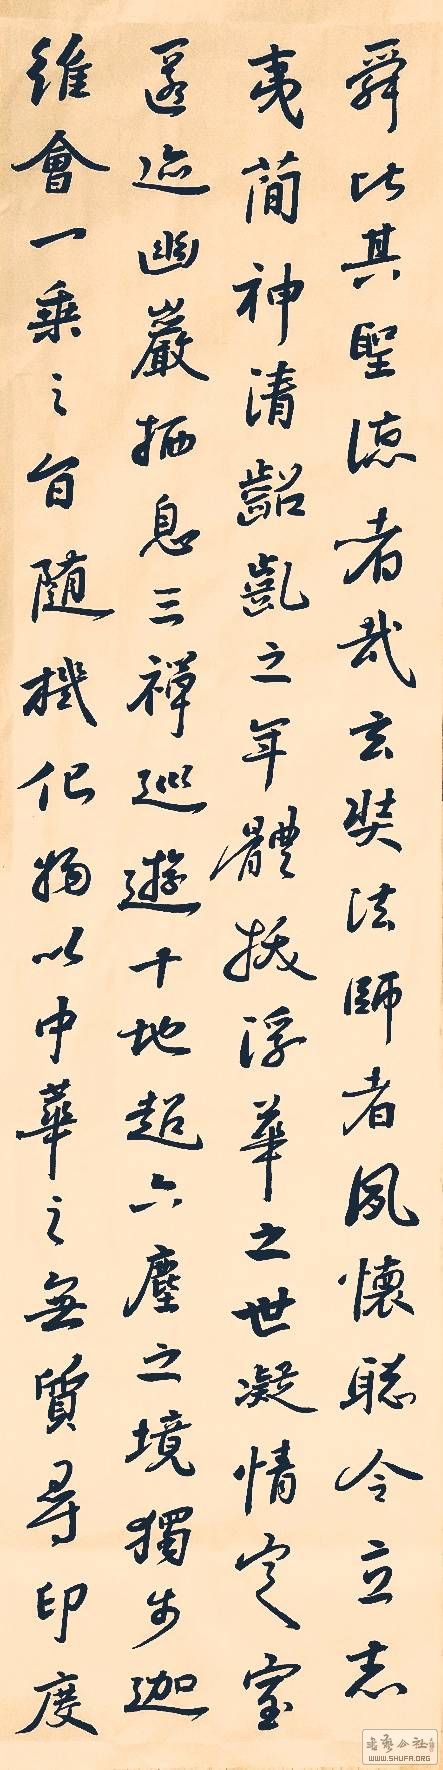 舜比其聖德者哉玄奘法師者夙懷聡令立志
夷蕳神清齠齓之年體拔浮華之世凝情定室
匿迹幽巖栖息三禪巡遊十地超六塵之境獨步迦
維會一乘之旨随機化物以中華之無質尋印度
WWW.SHUFA.ORG